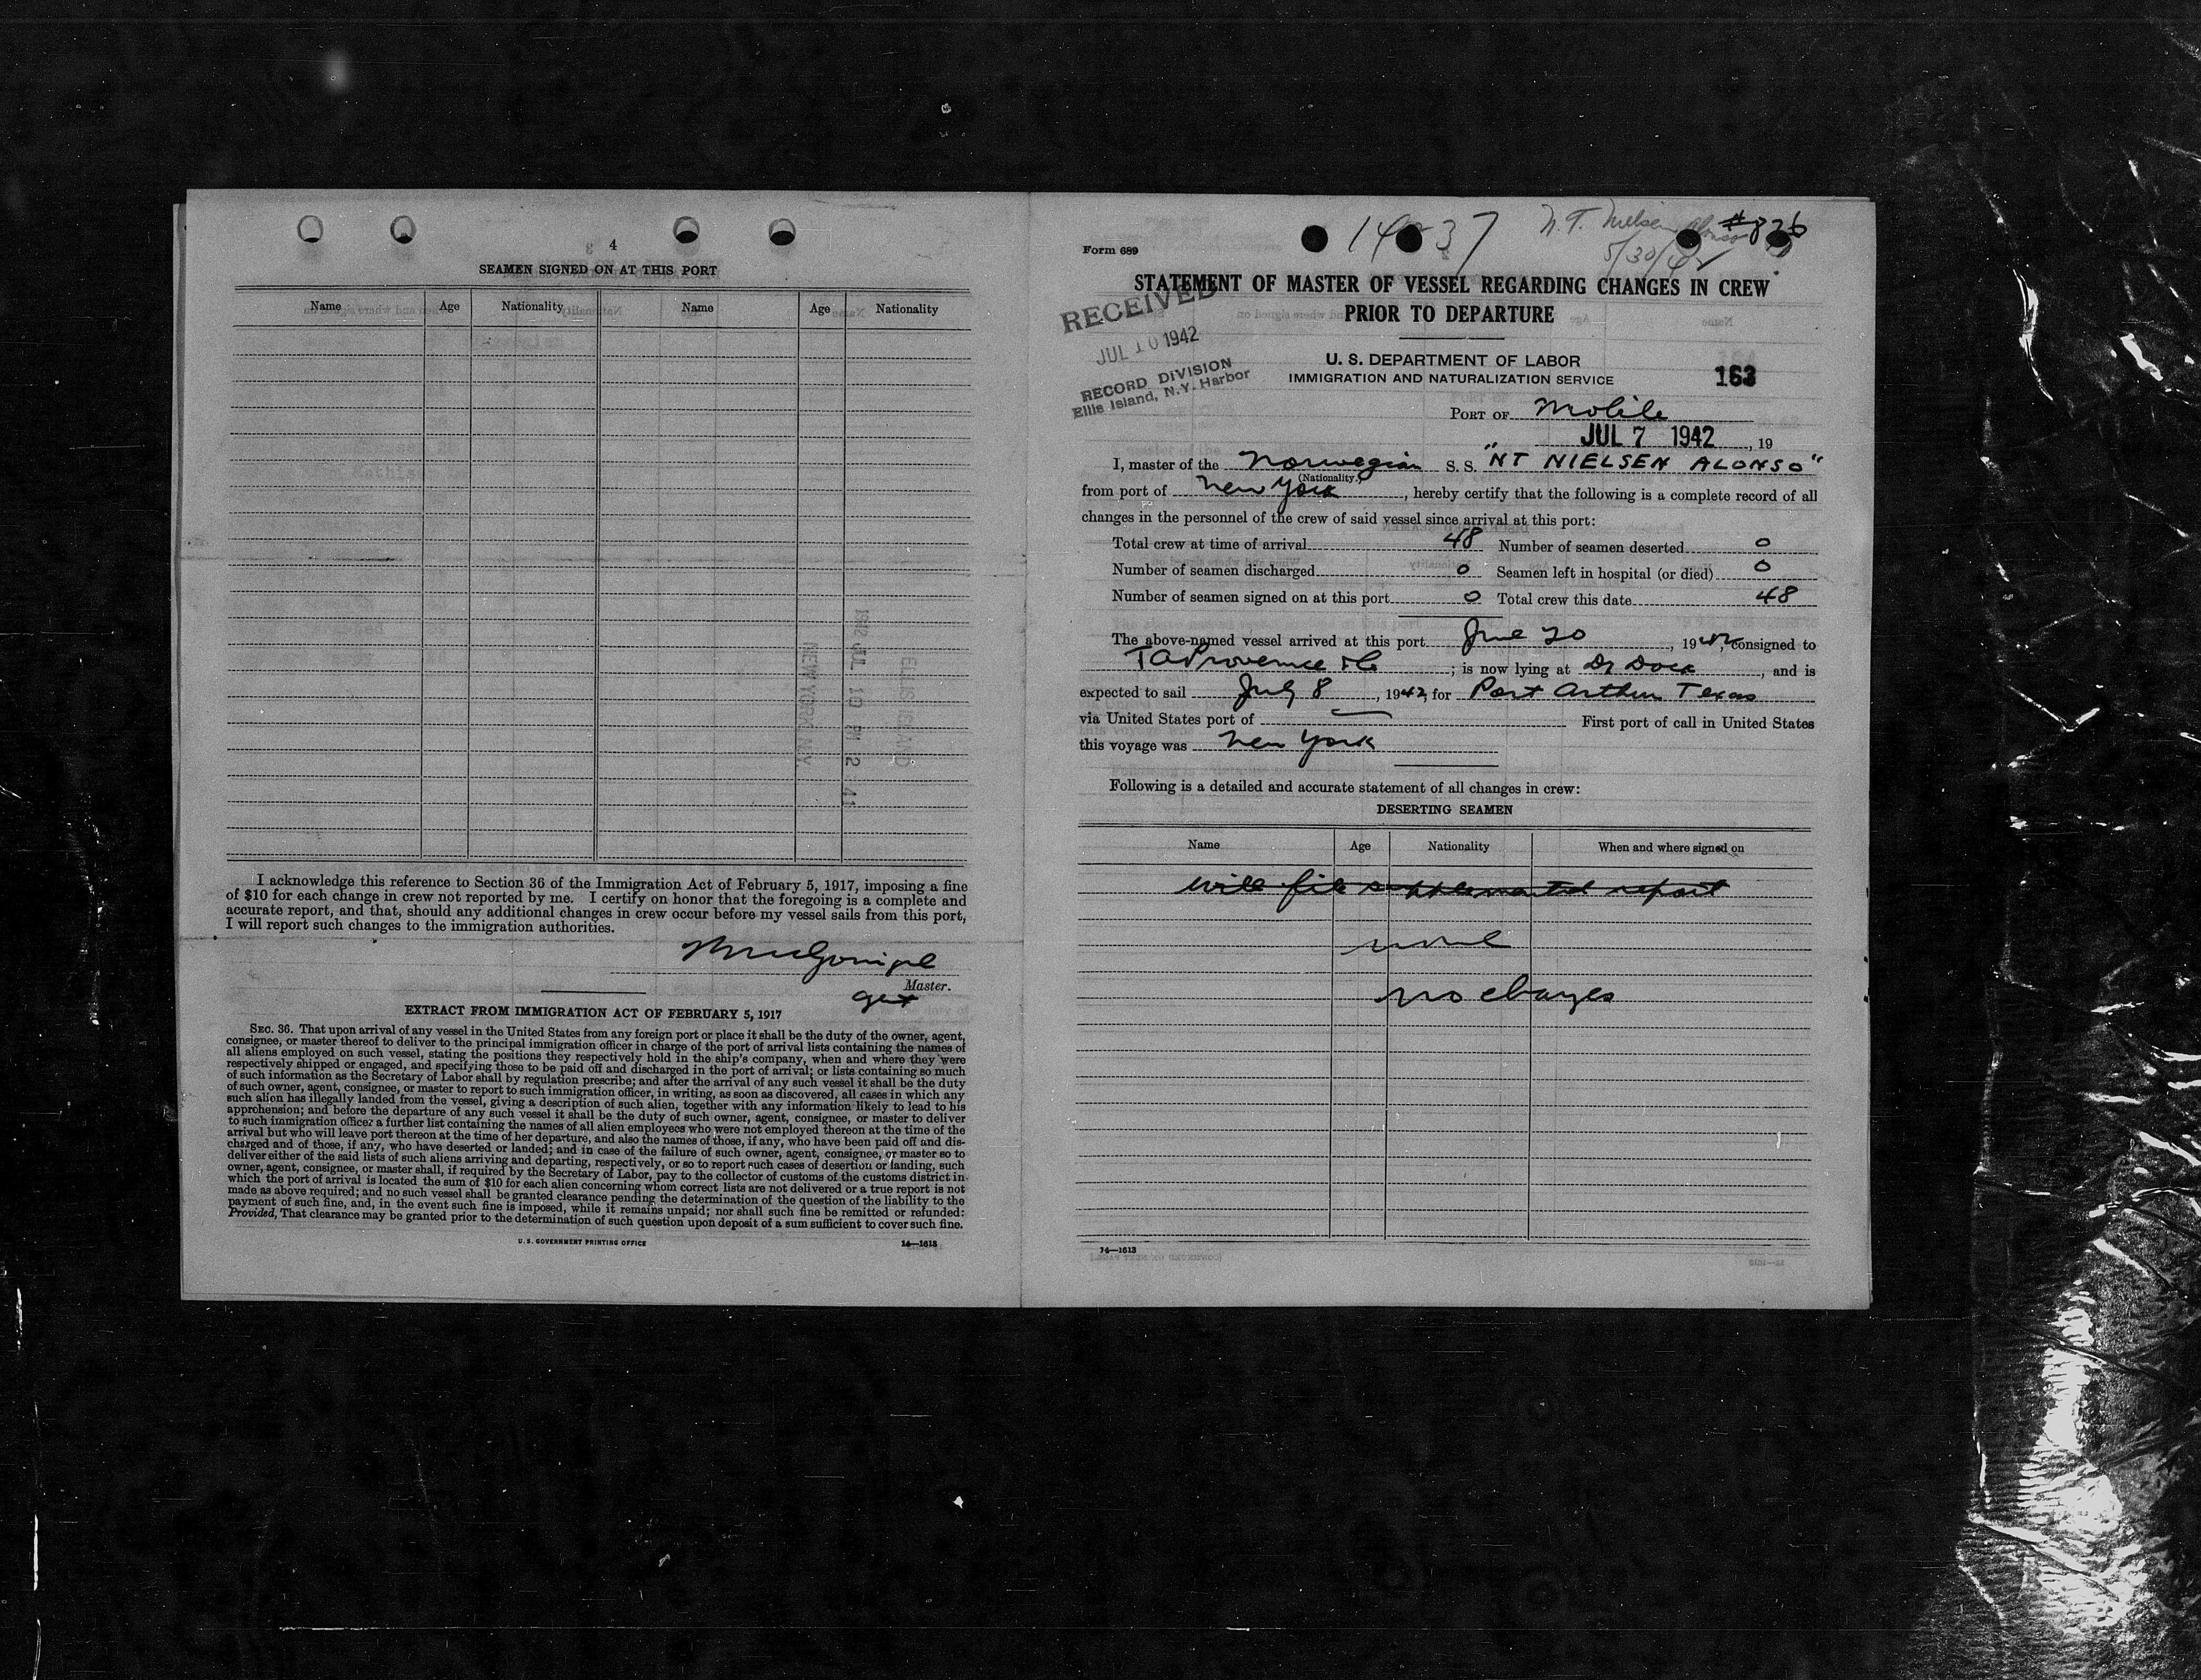 4
SEAMEN SIGNED ON AT THIS PORT
Name Age Nationality Name Age Nationality
ELLIS ISLAND
1942 JUL 10 PM 2 41
I acknowledge this reference to Section 36 of the Immigration Act of February 5, 1917, imposing a fine
of $10 for each change in crew not reported by me. I certify on honor that the foregoing is a complete and
accurate report, and that, should any additional changes in crew occur before my vessel sails from this port,
I will report such changes to the immigration authorities.
Master.
agt
EXTRACT FROM IMMIGRATION ACT OF FEBRUARY 5, 1917
SEC. 36. That upon arrival of any vessel in the United States from any foreign port or place it shall be the duty of the owner, agent,
consignee, or master thereof to deliver to the principal immigration officer in charge of the port of arrival lists containing the names of
all aliens employed on such vessel, stating the positions they respectively hold in the ship's company, when and where they were
respectively shipped or engaged, and specifying those to be paid off and discharged in the port of arrival; or lists containing so much
of such information as the Secretary of Labor shall by regulation prescribe; and after the arrival of any such vessel it shall be the duty
of such owner, agent, consignee, or master to report to such immigration officer, in writing, as soon as discovered, all cases in which any
such alien has illegally landed from the vessel, giving a description of such alien, together with any information likely to lead to his
apprehension; and before the departure of any such vessel it shall be the duty of such owner, agent, consignee, or master to deliver
to such immigration officer a further list containing the names of all alien employees who were not employed thereon at the time of the
arrival but who will leave port thereon at the time of her departure, and also the names of those, if any, who have been paid off and dis-
charged and of those, if any, who have deserted or landed; and in case of the failure of such owner, agent, consignee, or master so to
deliver either of the said lists of such aliens arriving and departing, respectively, or so to report such cases of desertion or landing, such
owner, agent, consignee, or master shall, if required by the Secretary of Labor, pay to the collector of customs of the customs district in
which the port of arrival is located the sum of $10 for each alien concerning whom correct lists are not delivered or a true report is not
made as above required; and no such vessel shall be granted clearance pending the determination of the question of the liability to the
payment of such fine, and, in the event such fine is imposed, while it remains unpaid; nor shall such fine be remitted or refunded:
Provided, That clearance may be granted prior to the determination of such question upon deposit of a sum sufficient to cover such fine.
U. S. GOVERNMENT PRINTING OFFICE 14—1613
Form 689
N.T. Nielsen Alonso
5/30/42
STATEMENT OF MASTER OF VESSEL REGARDING CHANGES IN CREW
PRIOR TO DEPARTURE
RECEIVED
JUL 10 1942
RECORD DIVISION
Ellis Island, N.Y. Harbor
U. S. DEPARTMENT OF LABOR
IMMIGRATION AND NATURALIZATION SERVICE
163
PORT OF Mobile
JUL 7 1942, 19
I, master of the Norwegian S. S. "NT NIELSEN ALONSO"
(Nationality)
from port of New York, hereby certify that the following is a complete record of all
changes in the personnel of the crew of said vessel since arrival at this port:
Total crew at time of arrival 48 Number of seamen deserted 0
Number of seamen discharged 0 Seamen left in hospital (or died) 0
Number of seamen signed on at this port 0 Total crew this date 48
The above-named vessel arrived at this port June 20, 1942, consigned to
T A Provence & Co; is now lying at Dr Dock, and is
expected to sail July 8, 1942, for Port Arthur Texas
via United States port of — First port of call in United States
this voyage was New York
Following is a detailed and accurate statement of all changes in crew:
DESERTING SEAMEN
Name Age Nationality When and where signed on
will file supplemental report
none
no changes
14—1613